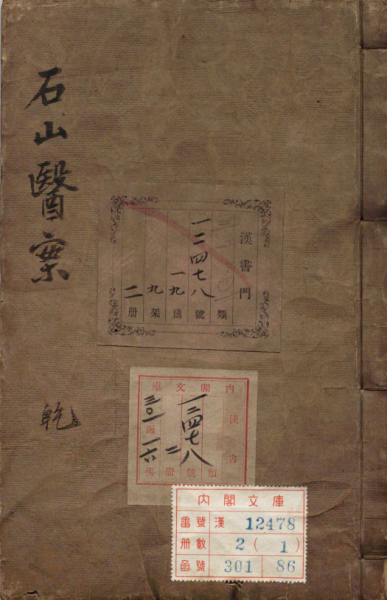 石山醫案
乾
漢書門
類
一二四七八號
一九函
九架
二册
內閣文庫
漢書
一二四七八
二
三〇一函
一六
內閣文庫
番號 漢 12478
册數 2(1)
函號 301 86